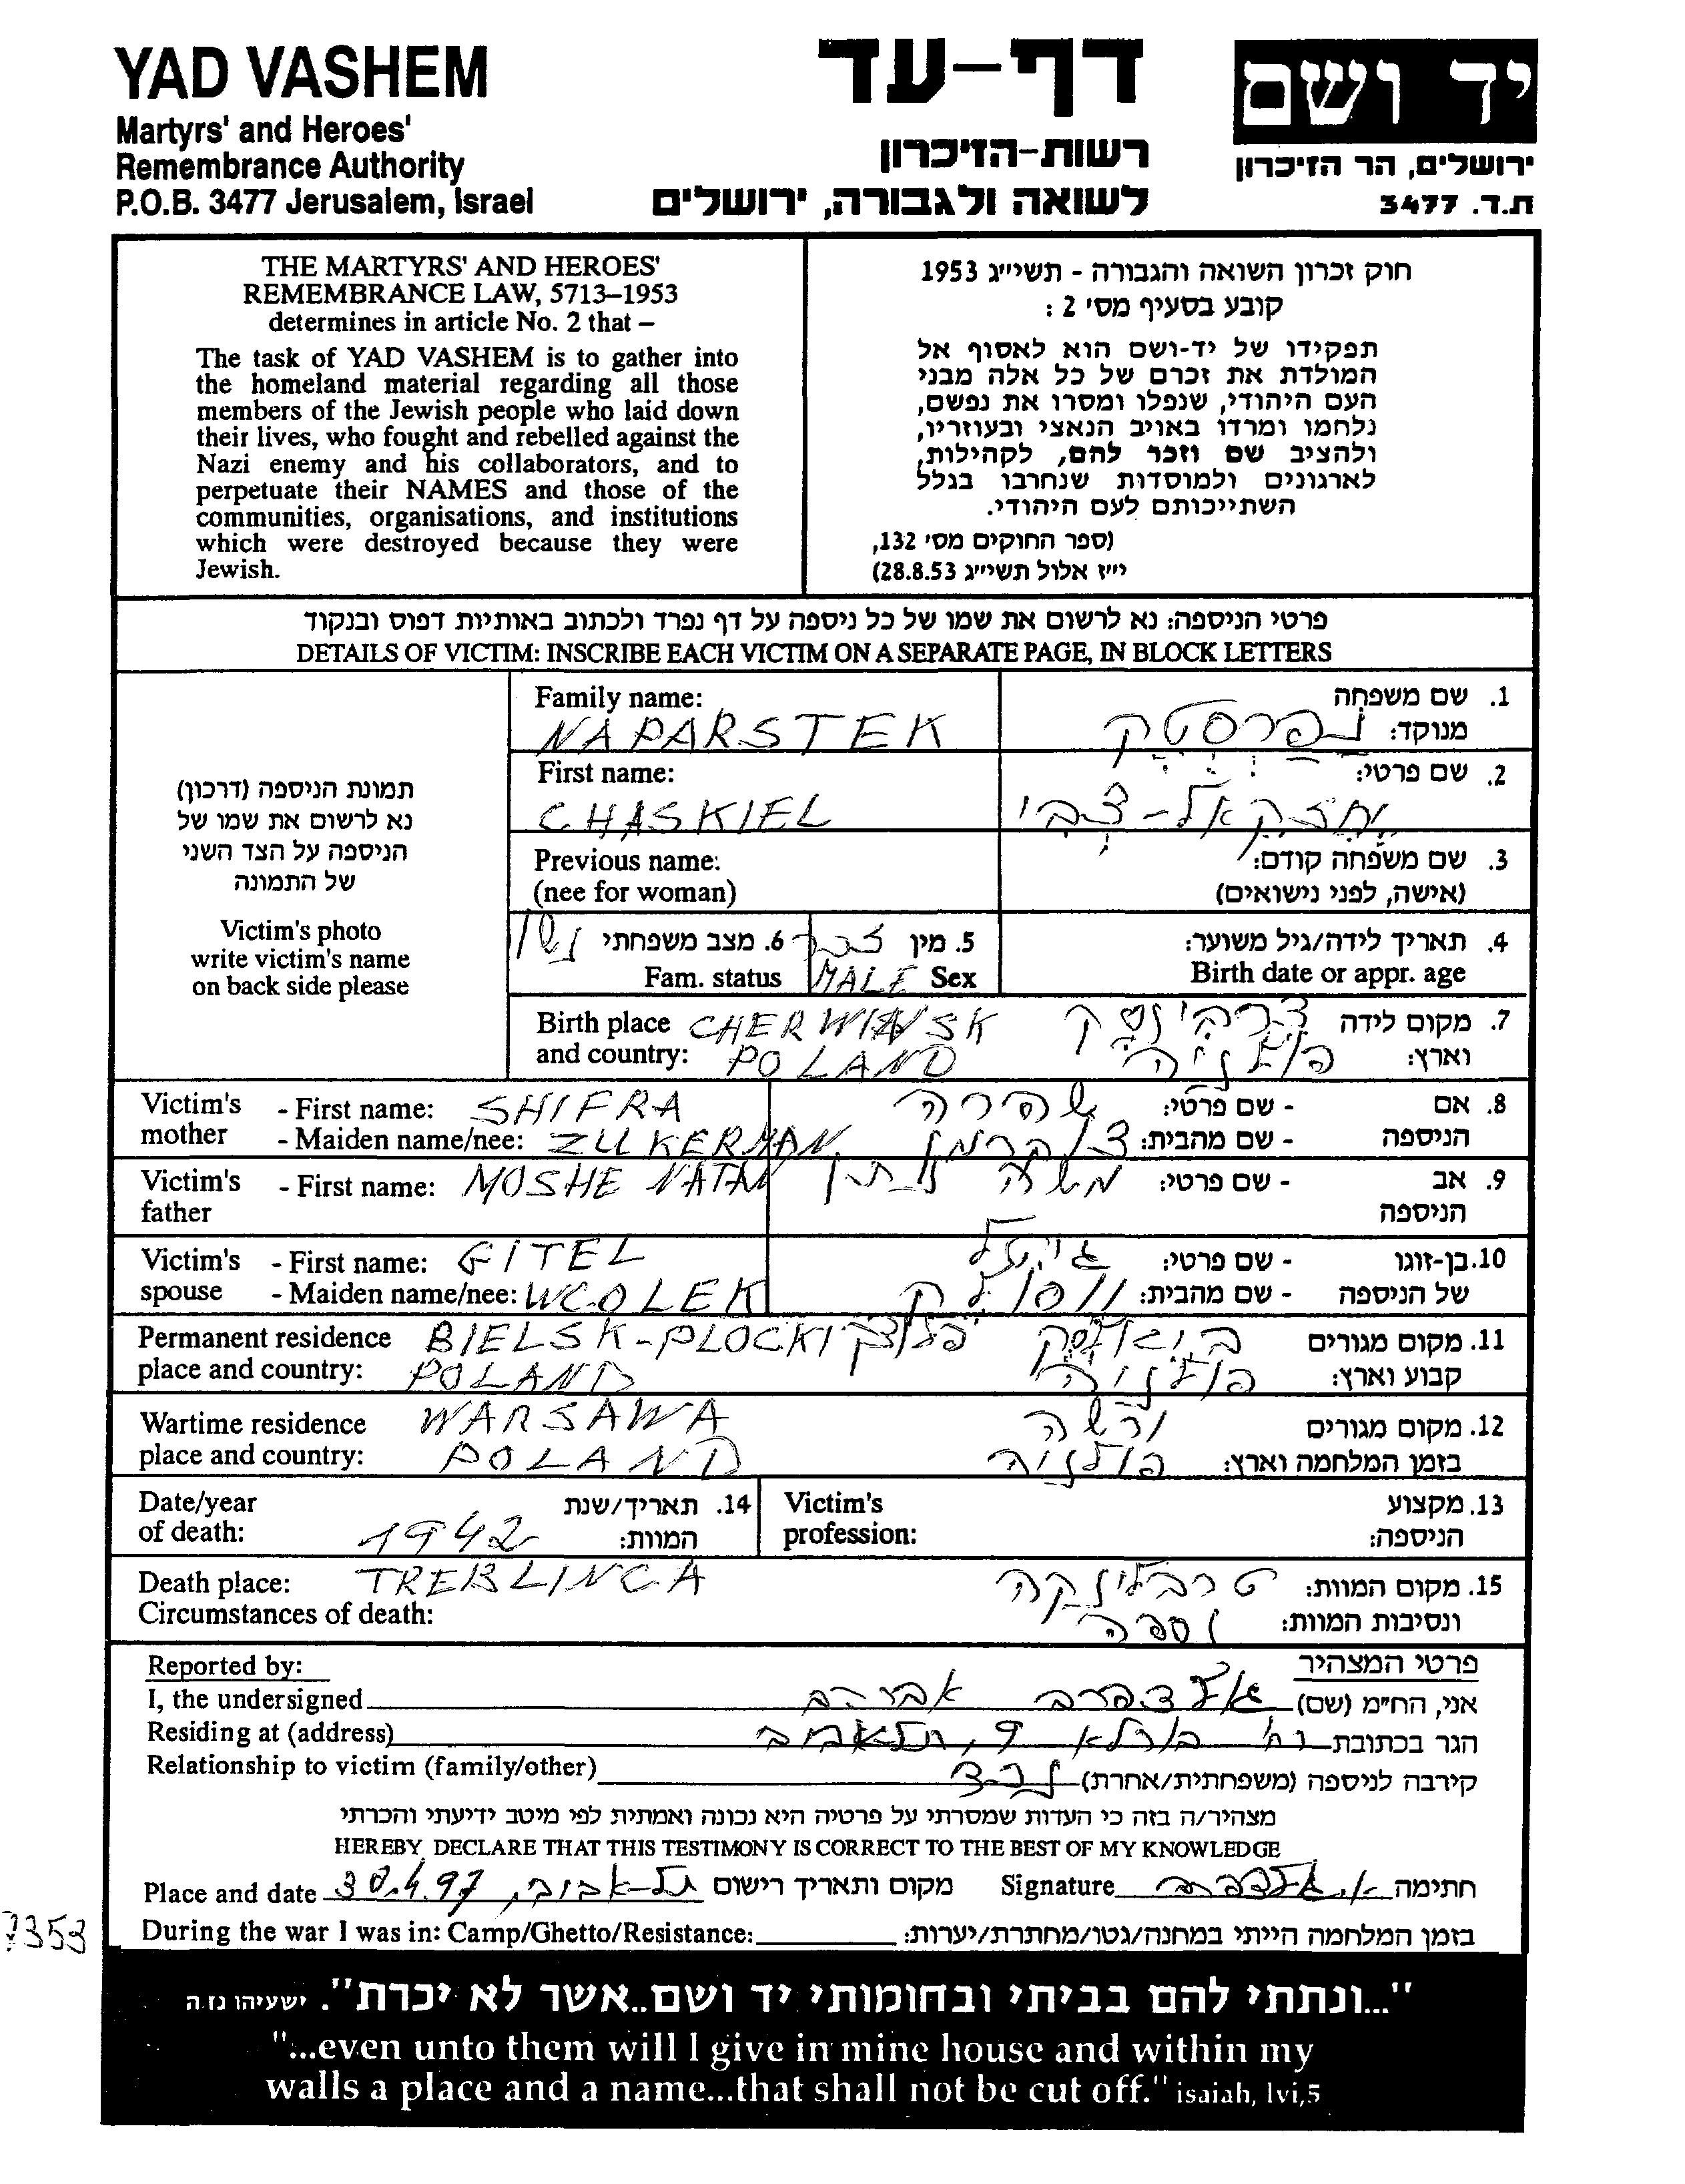 YAD VASHEM
Martyrs' and Heroes'
Remembrance Authority
P.O.B. 3477 Jerusalem, Israel
דף-עד
רשות-הזיכרון
לשואה ולגבורה, ירושלים
יד ושם
ירושלים, הר הזיכרון
ת.ד. 3477
THE MARTYRS' AND HEROES'
REMEMBRANCE LAW, 5713–1953
determines in article No. 2 that –
The task of YAD VASHEM is to gather into
the homeland material regarding all those
members of the Jewish people who laid down
their lives, who fought and rebelled against the
Nazi enemy and his collaborators, and to
perpetuate their NAMES and those of the
communities, organisations, and institutions
which were destroyed because they were
Jewish.
חוק זכרון השואה והגבורה - תשי״ג 1953
קובע בסעיף מס׳ 2 :
תפקידו של יד-ושם הוא לאסוף אל
המולדת את זכרם של כל אלה מבני
העם היהודי, שנפלו ומסרו את נפשם,
נלחמו ומרדו באויב הנאצי ובעוזריו,
ולהציב שם וזכר להם, לקהילות,
לארגונים ולמוסדות שנחרבו בגלל
השתייכותם לעם היהודי.
(ספר החוקים מס׳ 132,
י״ז אלול תשי״ג 28.8.53)
פרטי הניספה: נא לרשום את שמו של כל ניספה על דף נפרד ולכתוב באותיות דפוס ובנקוד
DETAILS OF VICTIM: INSCRIBE EACH VICTIM ON A SEPARATE PAGE, IN BLOCK LETTERS
תמונת הניספה (דרכון)
נא לרשום את שמו של
הניספה על הצד השני
של התמונה
Victim's photo
write victim's name
on back side please
Family name:
NAPARSTEK
1. שם משפחה
מנוקד: נפרסטק
First name:
CHASKIEL
2. שם פרטי:
יחזקאל-צבי
Previous name:
(nee for woman)
3. שם משפחה קודם:
(אישה, לפני נישואים)
6. מצב משפחתי נשוי
Fam. status
5. מין זכר
MALE Sex
4. תאריך לידה/גיל משוער:
Birth date or appr. age
Birth place CHERWINSK
and country: POLAND
7. מקום לידה צרבינסק
וארץ: פולניה
Victim's - First name: SHIFRA
mother - Maiden name/nee: ZUKERMAN
8. אם - שם פרטי: שפרה
הניספה - שם מהבית: צוקרמן
Victim's - First name: MOSHE NATAN
father
9. אב - שם פרטי: משה נתן
הניספה
Victim's - First name: GITEL
spouse - Maiden name/nee: WCOLEK
10. בן-זוגו - שם פרטי: גיטל
של הניספה - שם מהבית:
Permanent residence BIELSK-PLOCKI
place and country: POLAND
11. מקום מגורים
קבוע וארץ: פולניה
Wartime residence WARSAWA
place and country: POLAND
12. מקום מגורים ורשה
בזמן המלחמה וארץ: פולניה
Date/year
of death: 1942
14. תאריך/שנת
המוות:
Victim's
profession:
13. מקצוע
הניספה:
Death place: TREBLINCA
Circumstances of death:
15. מקום המוות: טרבלינקה
ונסיבות המוות: נספה
Reported by:
פרטי המצהיר
I, the undersigned אני, הח״מ (שם) גולדפרב אברהם
Residing at (address) הגר בכתובת רח׳ 9, תל אביב
Relationship to victim (family/other) קירבה לניספה (משפחתית/אחרת) נכד
מצהיר/ה בזה כי העדות שמסרתי על פרטיה היא נכונה ואמתית לפי מיטב ידיעתי והכרתי
HEREBY DECLARE THAT THIS TESTIMONY IS CORRECT TO THE BEST OF MY KNOWLEDGE
Place and date 30.4.97 תל-אביב, מקום ותאריך רישום Signature א. גולדפרב חתימה
During the war I was in: Camp/Ghetto/Resistance: בזמן המלחמה הייתי במחנה/גטו/מחתרת/יערות:
7353
"...ונתתי להם בביתי ובחומותי יד ושם..אשר לא יכרת". ישעיהו נו.ה
"...even unto them will I give in mine house and within my
walls a place and a name...that shall not be cut off." isaiah, lvi,5